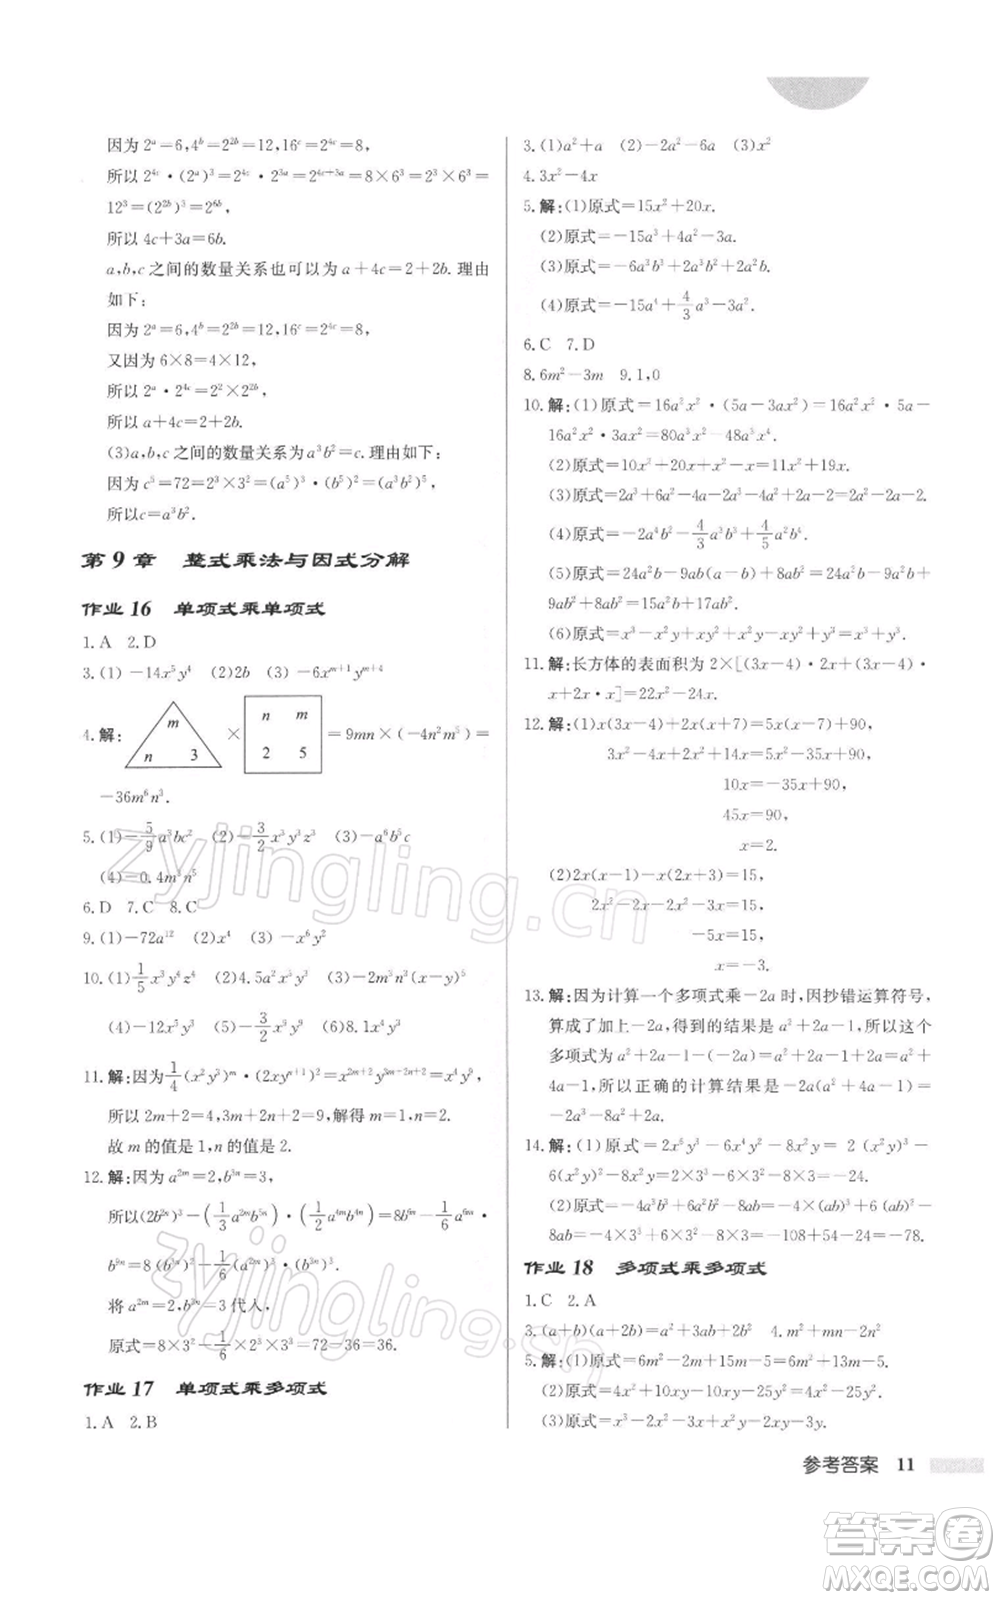 因为 2ᵃ=6,4ᵇ=2²ᵇ=12,16ᶜ=2⁴ᶜ=8,
所以 2⁴ᶜ·(2ᵃ)³=2⁴ᶜ·2³ᵃ=2⁴ᶜ⁺³ᵃ=8×6³=
12³=(2²ᵇ)³=2⁶ᵇ,
所以 4c+3a=6b.
a,b,c 之间的数量关系也可以为 a+4c=2+2b. 理由
如下:
因为 2ᵃ=6,4ᵇ=2²ᵇ=12,16ᶜ=2⁴ᶜ=8,
又因为 6×8=4×12,
所以 2ᵃ·2⁴ᶜ=2²×2²ᵇ,
所以 a+4c=2+2b.
(3)a,b,c 之间的数量关系为 a³b²=c. 理由如下:
因为 c⁵=72=2³×3²=(a⁵)³·(b⁵)²=(a³b²)⁵,
所以c=a³b².
第 9 章 整式乘法与因式分解
作业 16 单项式乘单项式
1. A 2. D
3. (1)-14x⁵y⁴ (2)2b (3)-6xᵐ⁺¹yᵐ⁺⁴
4. 解: m n 3 × n m 2 5 =9mn×(-4n²m⁵)=
-36m⁶n³.
5. (1)-5/9a³bc² (2)-3/2x³y³z³ (3)-a⁶b⁵c
(4)-0.4m³n⁵
6. D 7. C 8. C
9. (1)-72a¹² (2)x⁴ (3)-x⁶y²
10. (1)1/5x³y⁴z⁴ (2)4.5a²x⁵ (3)-2m³n³(x-y)⁵
(4)-12x⁵y⁵ (5)-3/2x³y⁹ (6)8.1x⁴y⁴
11. 解:因为1/4(x²y³)ᵐ·(2xyⁿ⁺¹)²=x²ᵐ⁺²y³ᵐ⁺²ⁿ⁺²=x⁴y⁹,
所以 2m+2=4,3m+2n+2=9,解得 m=1,n=2.
故 m 的值是 1,n 的值是 2.
12. 解:因为 a²ᵐ=2,b³ⁿ=3,
所以(2b²ⁿ)³-(1/3a²ᵐb⁵ⁿ)·(1/2a⁴ᵐb⁴ⁿ)=8b⁶ⁿ-1/6a⁶ᵐ·
b⁹ⁿ=8(b³ⁿ)²-1/6(a²ᵐ)³·(b³ⁿ)³.
将 a²ᵐ=2,b³ⁿ=3 代入,
原式=8×3²-1/6×2³×3³=72-36=36.
作业 17 单项式乘多项式
1. A 2. B
3. (1)a²+a (2)-2a²-6a (3)x²
4. 3x²-4x
5. 解:(1)原式=15x²+20x.
(2)原式=-15a³+4a²-3a.
(3)原式=-6a³b³+2a²b²-2a²b.
(4)原式=-15a⁴+4/3a³-3a².
6. C 7. D
8. 6m²-3m 9. 1,0
10. 解:(1)原式=16a²x²·(5a-3ax²)=16a²x²·5a-
16a²x²·3ax²=80a³x²-48a³x⁴.
(2)原式=10x²+20x+x²-x=11x²+19x.
(3)原式=2a³+6a²-4a-2a³-4a²-2a+4a-2=2a²-2a-2.
(4)原式=-2a⁴b²-4/3a³b³+4/5a²b⁴.
(5)原式=24a²b-6ab²-24a²b-9ab²+8ab²=-6ab²-
9ab²+8ab²=-7ab².
(6)原式=x³-x²y+xy²+x²y-xy²+y³=x³+y³.
11. 解:长方体的表面积为 2×[(3x-4)·2x+(3x-4)·
x+2x·x]=22x²-24x.
12. 解:(1)x(3x-4)+2x(x+7)=5x(x-7)+90,
3x²-4x+2x²+14x=5x²-35x+90,
10x=-35x+90,
45x=90,
x=2.
(2)2x(x-1)-x(2x+3)=15,
2x²-2x-2x²-3x=15,
-5x=15,
x=-3.
13. 解:因为计算一个多项式乘-2a 时,因抄错运算符号,
算成了加上-2a,得到的结果是 a²+2a-1,所以这个
多项式为 a²+2a-1-(-2a)=a²+2a-1+2a=a²+
4a-1,所以正确的计算结果是-2a(a²+4a-1)=
-2a³-8a²+2a.
14. 解:(1)原式=2x⁶y³-6x⁴y²-8x²y= 2 (x²y)³-
6(x²y)²-8x²y=2×3³-6×3²-8×3=-24.
(2)原式=-4a³b³+6a²b²-8ab=-4(ab)³+6(ab)²-
8ab=-4×3³+6×3²-8×3=-108+54-24=-78.
作业 18 多项式乘多项式
1. C 2. A
3. (a+b)(a+2b)=a²+3ab+2b² 4. m²+mn-2n²
5. 解:(1)原式=6m²-2m-15m+5=6m²-17m+5.
(2)原式=4x²+10xy-10xy-25y²=4x²-25y².
(3)原式=x³-2x²-2xy+x²y=x³-2x²+x²y-2xy.
参考答案 11
zyjingling.cn
zyjingling.cn
答案圈
MXQE.COM